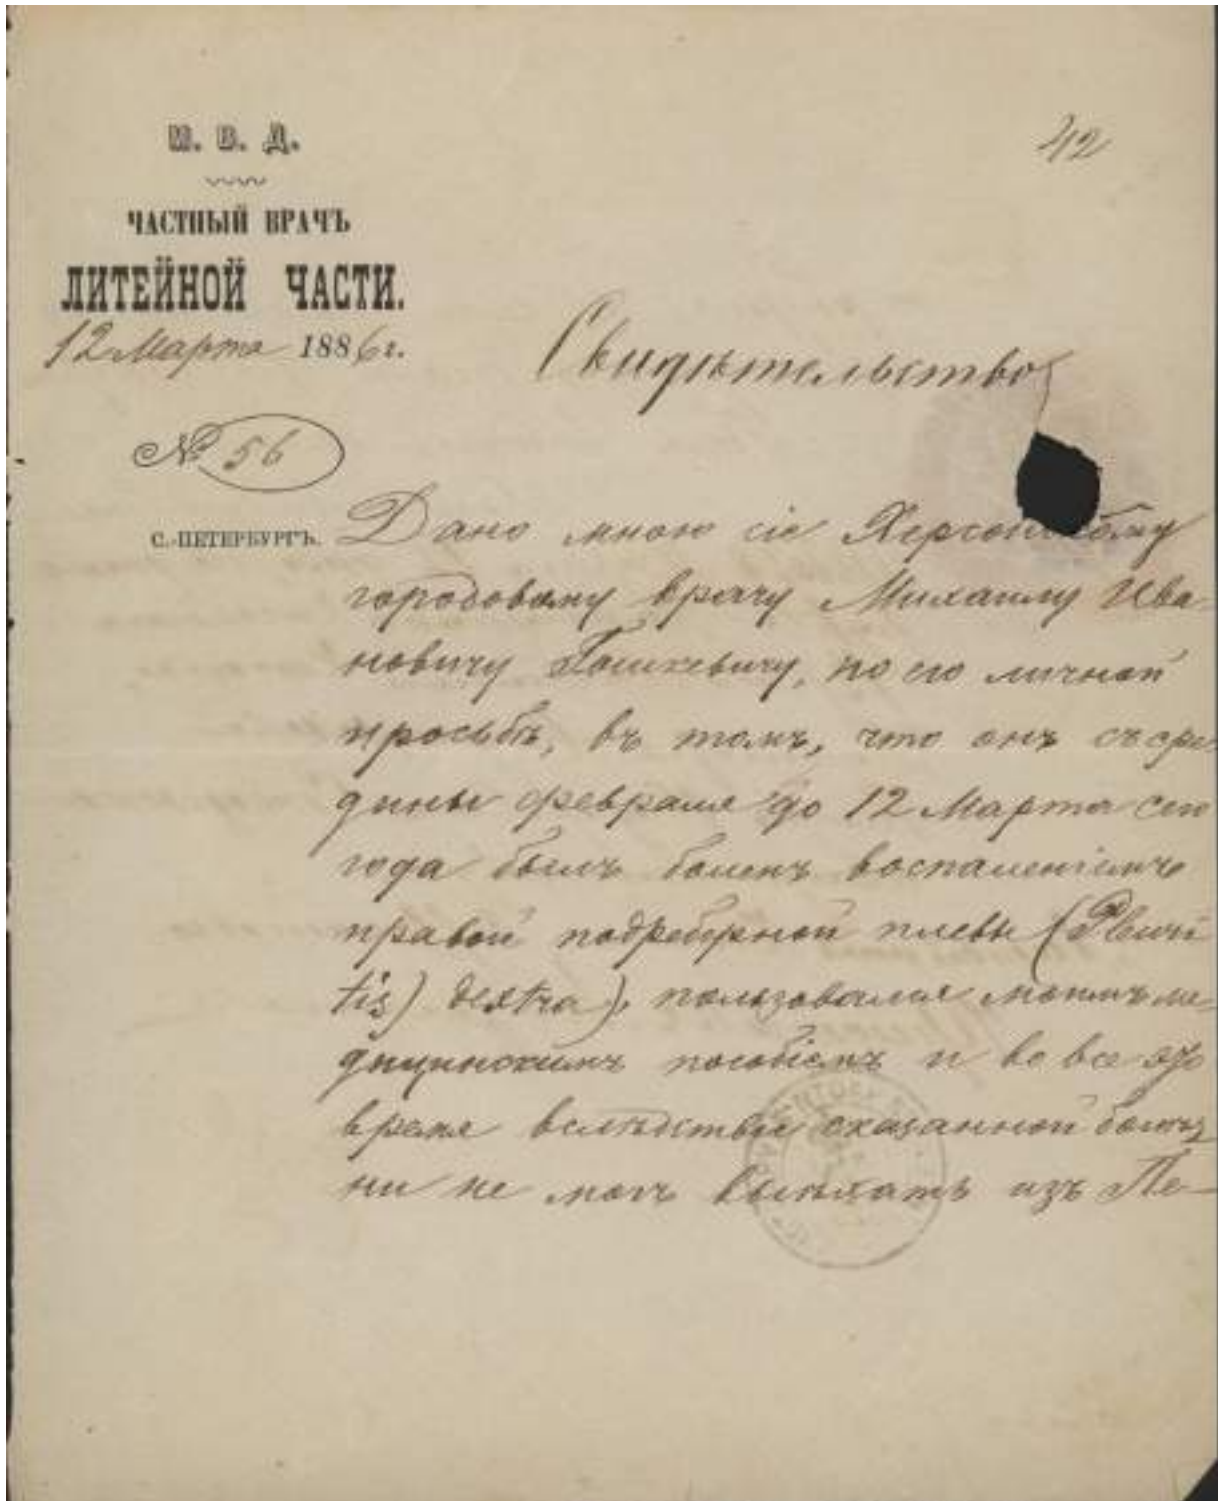 М. В. Д.
42
ЧАСТНЫЙ ВРАЧЪ
ЛИТЕЙНОЙ ЧАСТИ.
12 Марта 1886 г.
Свидѣтельство
№ 56
С.-ПЕТЕРБУРГЪ.
Дано мною сіе Херсонскому
городовому врачу Михаилу Ива-
новичу Гошкевичу, по его личной
просьбѣ, въ томъ, что онъ съ сре
дины февраля до 12 Марта сего
года былъ боленъ воспаленіемъ
правой подреберной плевы (Pleuri
tis) dextra), пользовался моимъ ме-
дицинскимъ пособіемъ и во все это
время вслѣдствіе сказанной болѣз
ни не могъ выѣхать изъ Пе-